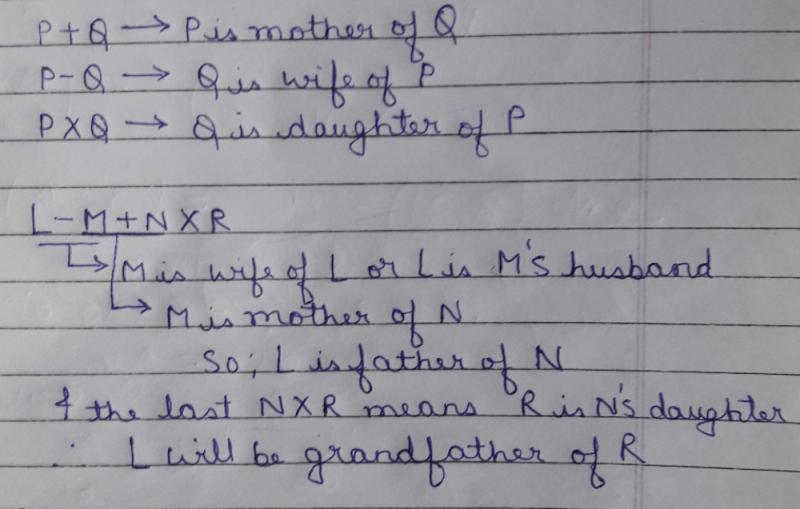 P+Q → P is mother of Q
P-Q → Q is wife of P
P×Q → Q is daughter of P
L-M+N×R
→ M is wife of L or L is M's husband
→ M is mother of N
So; L is father of N
& the last N×R means R is N's daughter
∴ L will be grandfather of R